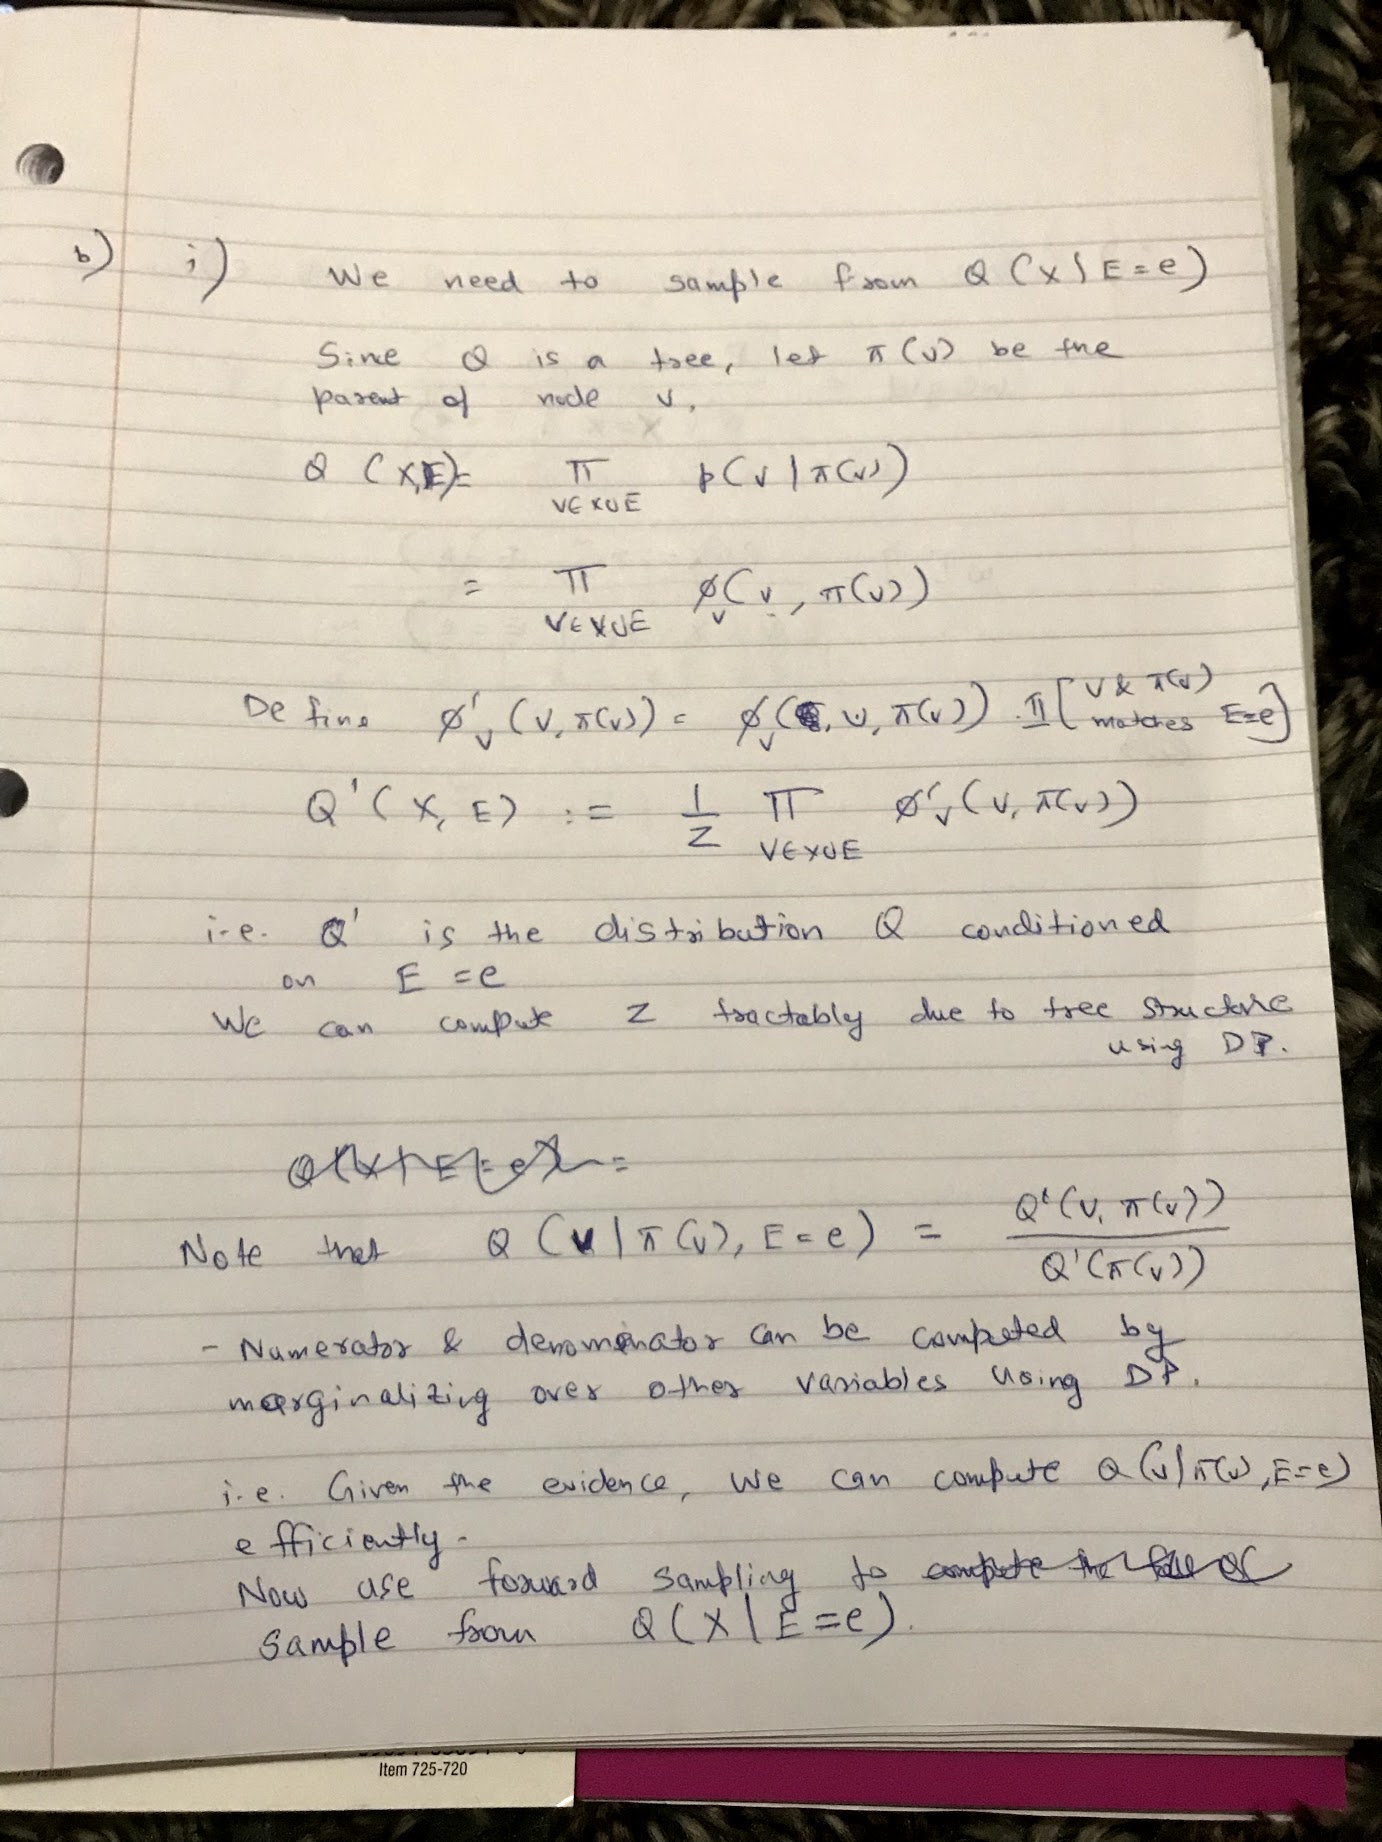 b) i) We need to sample from Q(X | E=e)
Since Q is a tree, let π(v) be the
parent of node v.
Q(X,E)= Π p(v | π(v))
v∈X∪E
= Π ϕ_v(v, π(v))
v∈X∪E
Define ϕ'_v(v,π(v)) = ϕ_v(v, π(v)) · 𝟙[v & π(v) matches E=e]
Q'(X, E) := 1/Z Π ϕ'_v(v, π(v))
v∈X∪E
i.e. Q' is the distribution Q conditioned
on E = e
We can compute Z tractably due to tree structure
using DP.
Note that Q(v | π(v), E=e) = Q'(v, π(v)) / Q'(π(v))
- Numerator & denominator can be computed by
marginalizing over other variables using DP.
i.e. Given the evidence, we can compute Q(v|π(v), E=e)
efficiently.
Now use forward sampling to
sample from Q(X | E=e).
Item 725-720